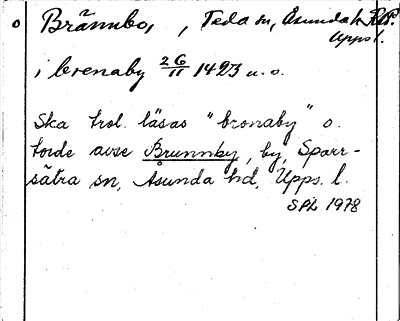 o Brännbo, , Teda sn, Åsunda h. R.P.
Upps l.
i brenaby 26/11 1423 u. o.
Ska trol. läsas "bronaby" o.
torde avse Brunnby, by, Sparr-
sätra sn, Åsunda hd, Upps. l.
SPL 1978